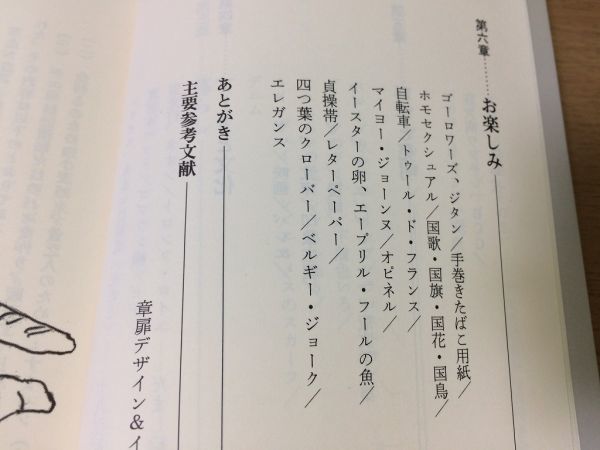 第六章………お楽しみ
ゴーロワーズ、ジタン／手巻きたばこ用紙／
ホモセクシュアル／国歌・国旗・国花・国鳥／
自転車／トゥール・ド・フランス／
マイヨー・ジョーンヌ／オピネル／
イースターの卵、エープリル・フールの魚／
貞操帯／レターペーパー／
四つ葉のクローバー／ベルギー・ジョーク／
エレガンス
あとがき
主要参考文献
章扉デザイン&イ